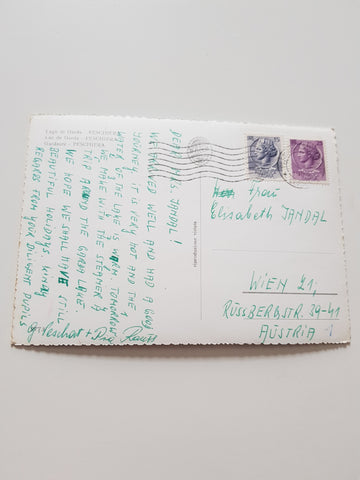 Lago di Garda - PESCHIERA
Lac de Garda - PESCHIERA
Gardasee - PESCHIERA
DEAR MRS JANDAL!
WE ARRIVED WELL AND HAD A GOOD
JOURNEY. IT IS VERY HOT AND THE
WATER OF THE LAKE IS WARM. TOMORROW
WE MAKE WITH THE STEAMER A
TRIP AROUND THE GARDA LAKE.
WE HOPE WE SHALL HAVE STILL
BEAUTIFUL HOLIDAYS. KINDLY
REGARDS FROM YOUR DILIGENT PUPILS
riproduzione vietata
Frau
Elisabeth JANDAL
WIEN 21,
RUSSBERGSTR. 39-41
AUSTRIA